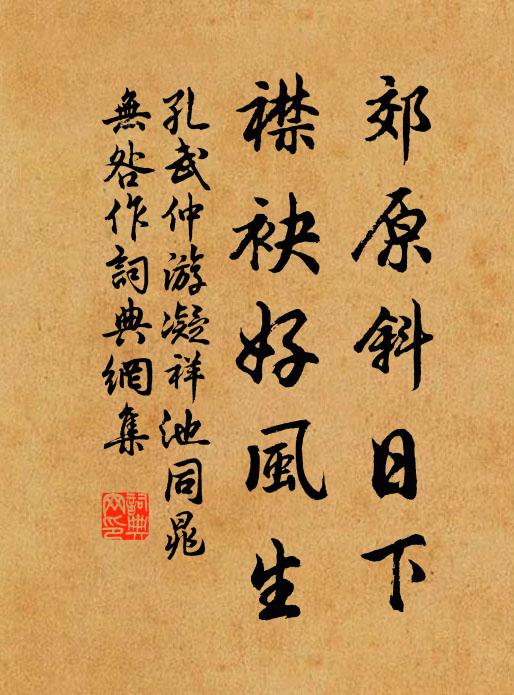 郊原斜日下
襟袂好風生
孔武仲游凝祥池同晁
無咎作詞典網集
詞典网印